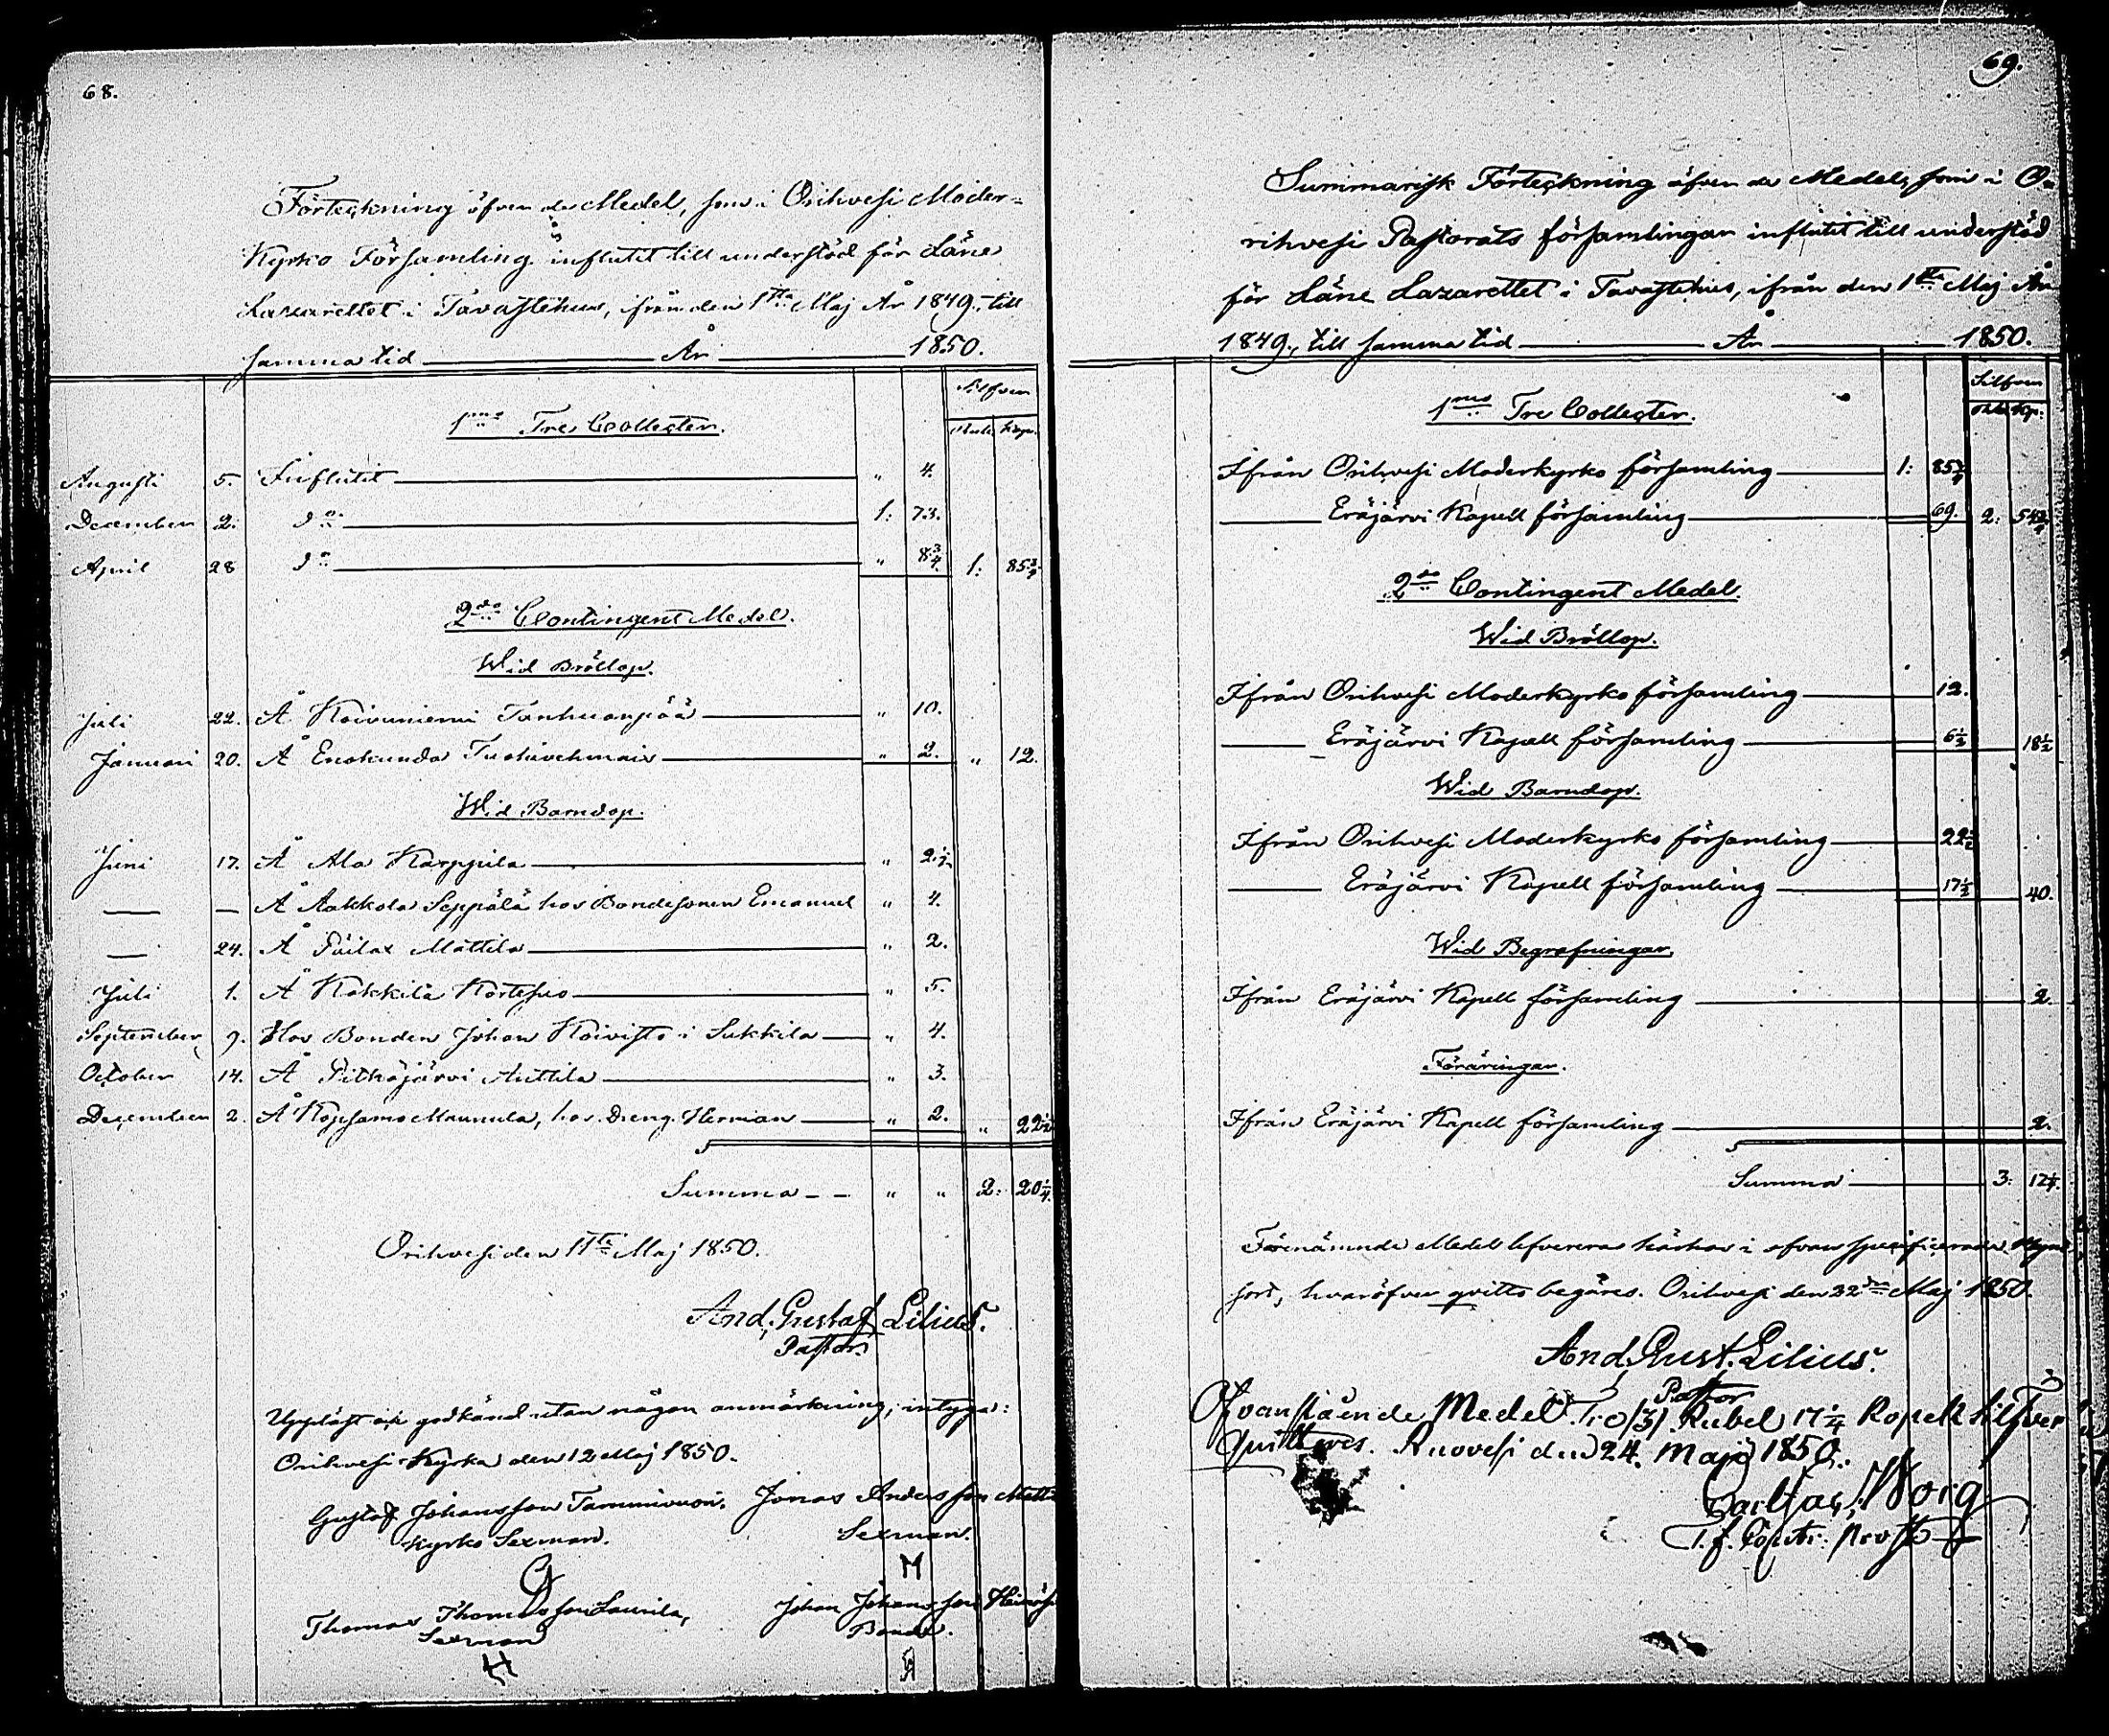 68.
Förteckning öfver de Medel, som i Orihvesi Moder-
Kyrko Församling influtit till understöd för Läne
Lazarettet i Tavastehus, ifrån den 1sta Maj År 1849, till
samma tid År 1850.
Silfver
Rub. Kop.
1mo Tre Collecter.
Augusti 5. Influtit " 4.
December 2. do 1: 73.
April 28 do " 8 3/4. 1: 85 3/4
2do Contingent Medel.
Wid Bröllop.
Juli 22. Å Koivuniemi Tanhuanpää " 10.
Januari 20. Å Enokunda " 2. " 12.
Wid Barndop.
Juni 17. Å Ala Karppila " 2 1/2
— — Å Aakkola Seppälä hos Bondesonen Emanuel " 4.
— 24. Å Mattila " 2.
Juli 1. Å Kokkila Kortesuo " 5.
September 9. Hos Bonden Johan Koivisto i Sukkila " 4.
October 14. Å Pitkäjärvi Anttila " 3.
December 2. Å Kopsamo Maunula, hos Dreng Herman " 2. " 22 1/2
Summa - - " " 2: 20 1/4.
Orihvesi den 11te Maj 1850.
And. Gustaf Lilius.
Pastor.
Uppläst och godkänd utan någon anmärkning, intyga:
Orihvesi Kyrka den 12 Maj 1850.
Gustaf Johansson Jonas Andersson
Kyrko Sexman. Sexman.
M
Thomas Thomasson Laurila, Johan Johansson
Sexman Bonde.
69.
Summarisk Förteckning öfver de Medel, som i O-
rihvesi Pastorats församlingar influtit till understöd
för Läne Lazarettet i Tavastehus, ifrån den 1sta Maj År
1849, till samma tid År 1850.
Silfver
Rub. Kop.
1mo Tre Collecter.
Ifrån Orihvesi Moderkyrko församling 1: 85 3/4
Eräjärvi Kapell församling 69. 2: 54 3/4
2do Contingent Medel.
Wid Bröllop.
Ifrån Orihvesi Moderkyrko församling 12.
Eräjärvi Kapell församling 6 1/2 18 1/2
Wid Barndop.
Ifrån Orihvesi Moderkyrko församling 22 1/2
Eräjärvi Kapell församling 17 1/2 40.
Wid Begrafningar.
Ifrån Eräjärvi Kapell församling 2
Föräringar.
Ifrån Eräjärvi Kapell församling 2.
Summa 3: 17 1/4.
Förenämnde Medel lefvereras härhos i ofvan specificerade Mynt
sort, hvaröfver qvitto begäres. Orihvesi den 22dra Maj 1850.
And. Gust. Lilius.
Pastor
Ofvanstående Medel Tre (3) Rubel 17 1/4 Kopek Silfver
quitteras. Ruovesi den 24. Maji 1850.
T. f. Contr. Prost